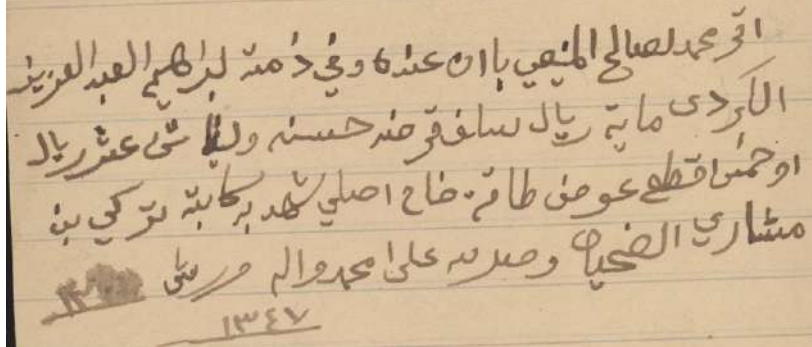 اقر محمد الصالح المنيعي باان عنده وفي ذمته لبراهيم العبدالعزيز
الكردى ماية ريال سلف قرضه حسنه و ثنى عشر ريال
او خمس اقطع عوض طاقة خام اصلي شهد به كاتبه تركي بن
مشاري الضحيان وصلى الله على محمد واله
١٣٤٧